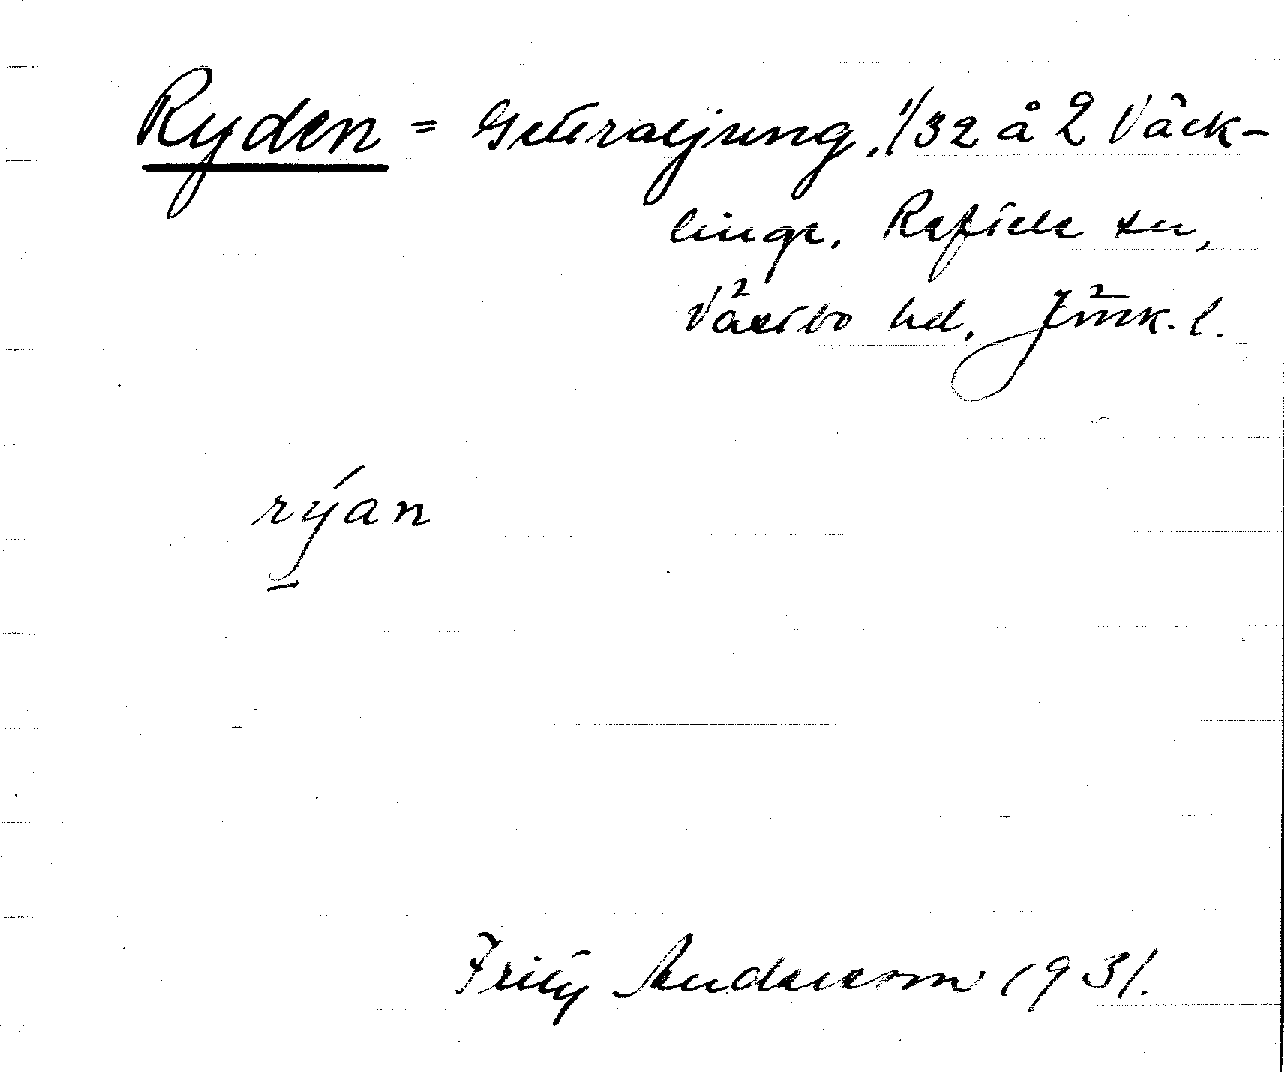 Ryden = Getaraljung, 1/32 å 2 Väck-
linge. Reftele sn,
Västbo hd. Jönk. l.
rýan
Fritz Andersson 1931.